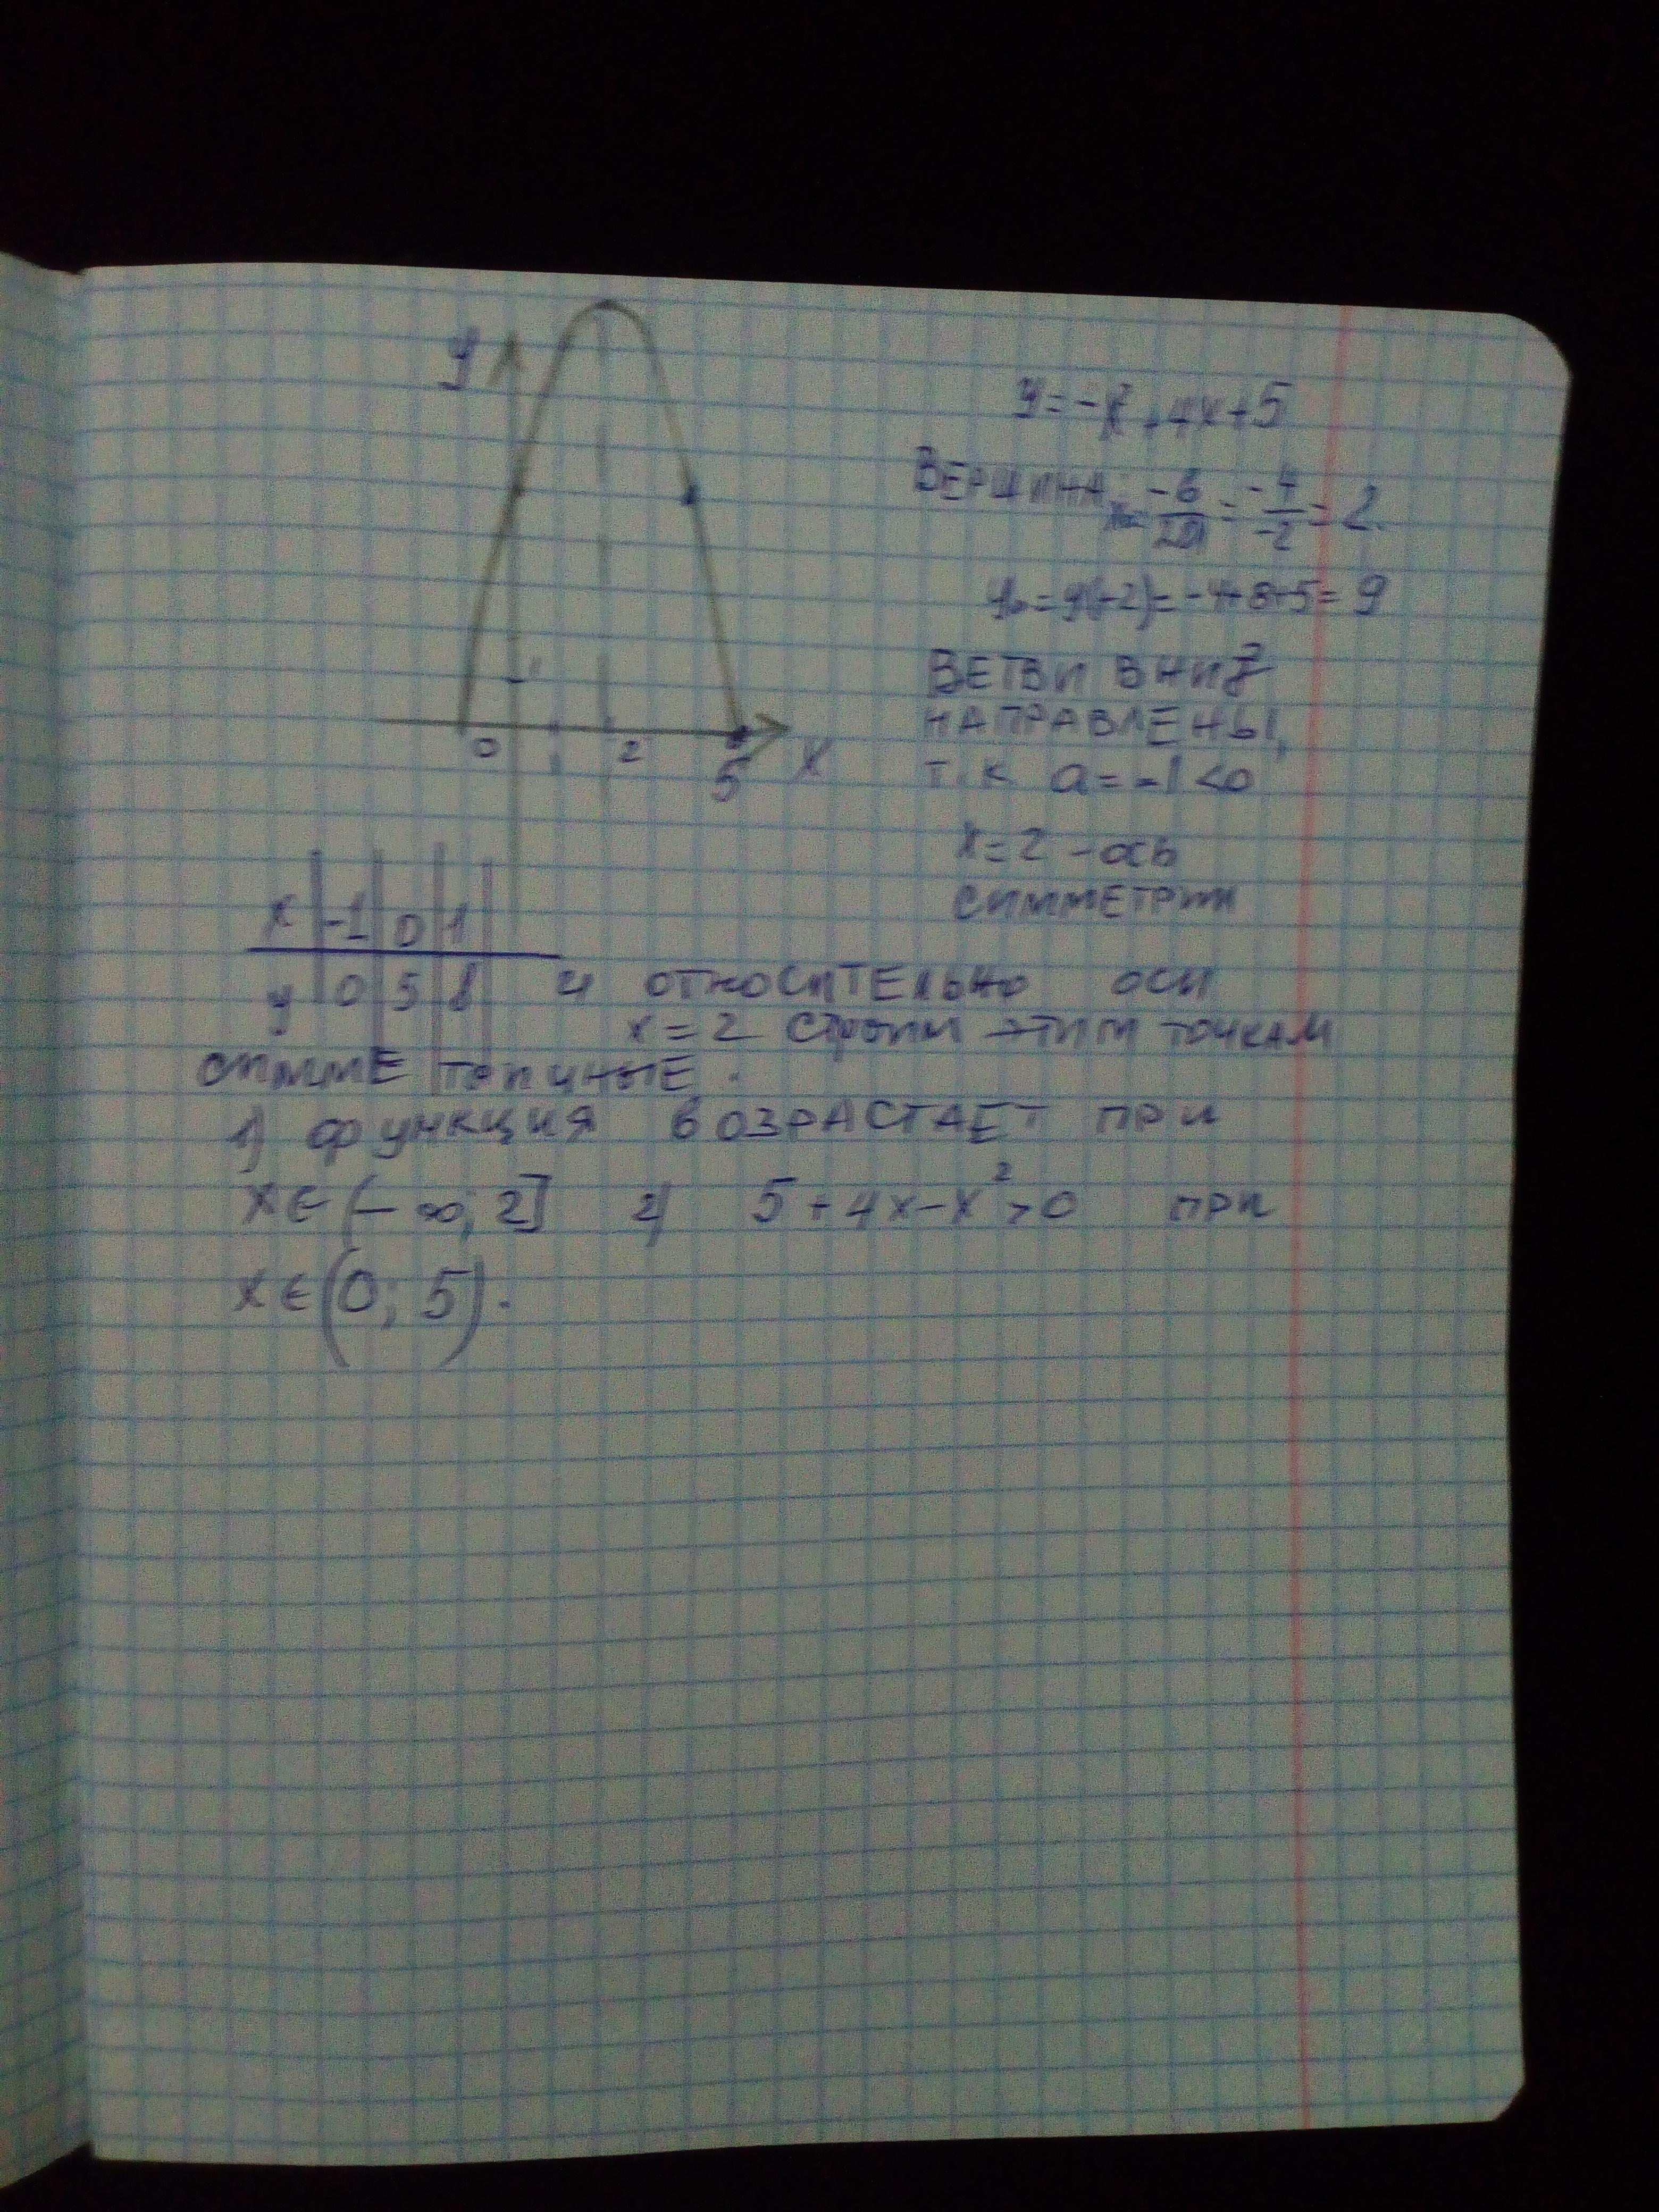 y
y = -x² + 4x + 5
ВЕРШИНА x₀ = -b/2a = -4/-2 = 2.
y₀ = y(-2) = -4+8+5 = 9
ВЕТВИ ВНИЗ
НАПРАВЛЕНЫ,
Т.К a = -1 < 0
x = 2 - ось
СИММЕТРИИ
1
0 1 2 5 X
x -1 0 1
y 0 5 8 и ОТНОСИТЕЛЬНО ОСИ
x = 2 строим этим точкам
СИММЕ ТРИЧНЫЕ.
1) функция возрастает при
x ∈ (-∞; 2] 2) 5 + 4x - x² > 0 при
x ∈ (0; 5).